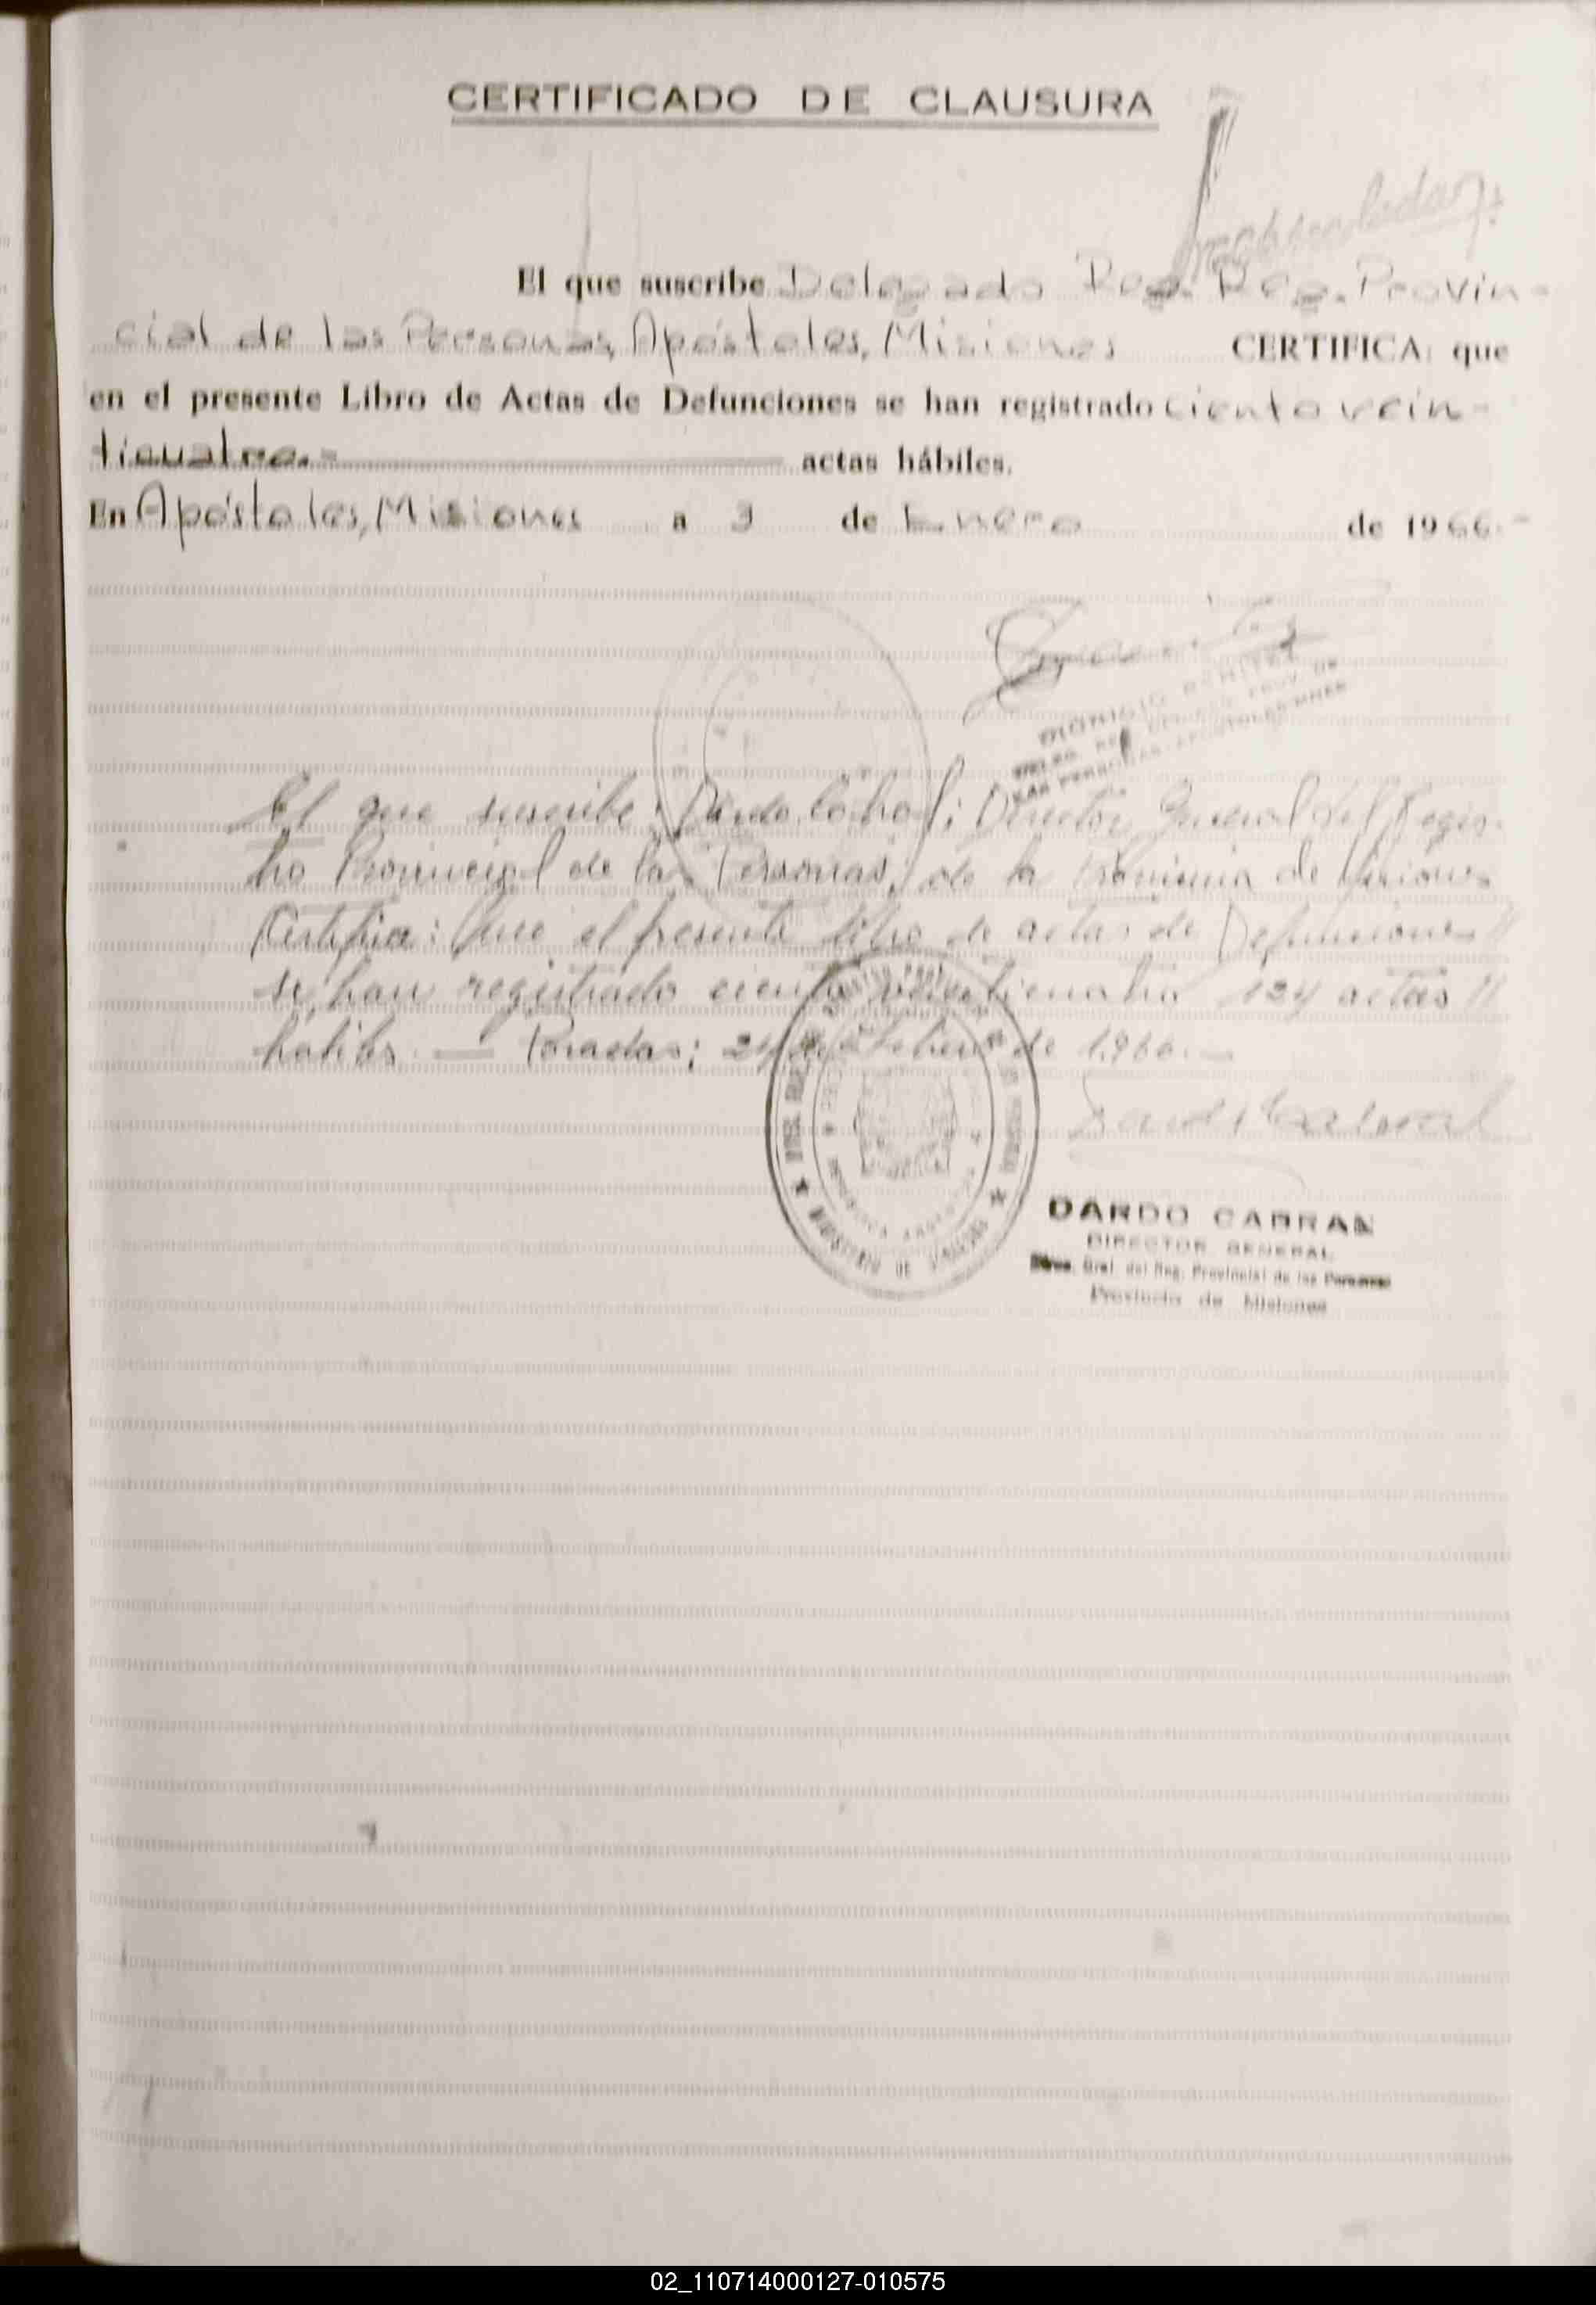 CERTIFICADO DE CLAUSURA
El que suscribe Delegado Reg. Reg. Provin-
cial de las Personas, Apóstoles, Misiones CERTIFICA: que
en el presente Libro de Actas de Defunciones se han registrado ciento vein-
ticuatro.- actas hábiles.
En Apóstoles, Misiones a 3 de Enero de 1966.-
DIONISIO BENITEZ
El que suscribe; Dardo Cabral; Director General del Regis-
tro Provincial de las Personas, de la Provincia de Misiones
Certifica: Que el presente libro de actas de Defunciones //
se han registrado ciento veinticuatro 124 actas //
hábiles. — Posadas; de Febrero de 1.966.—
Dardo Cabral
MINISTERIO DE
REPUBLICA ARGENTINA
DARDO CABRAL
DIRECTOR GENERAL
Direc. Gral. del Reg. Provincial de las Personas
Provincia de Misiones
02_110714000127-010575